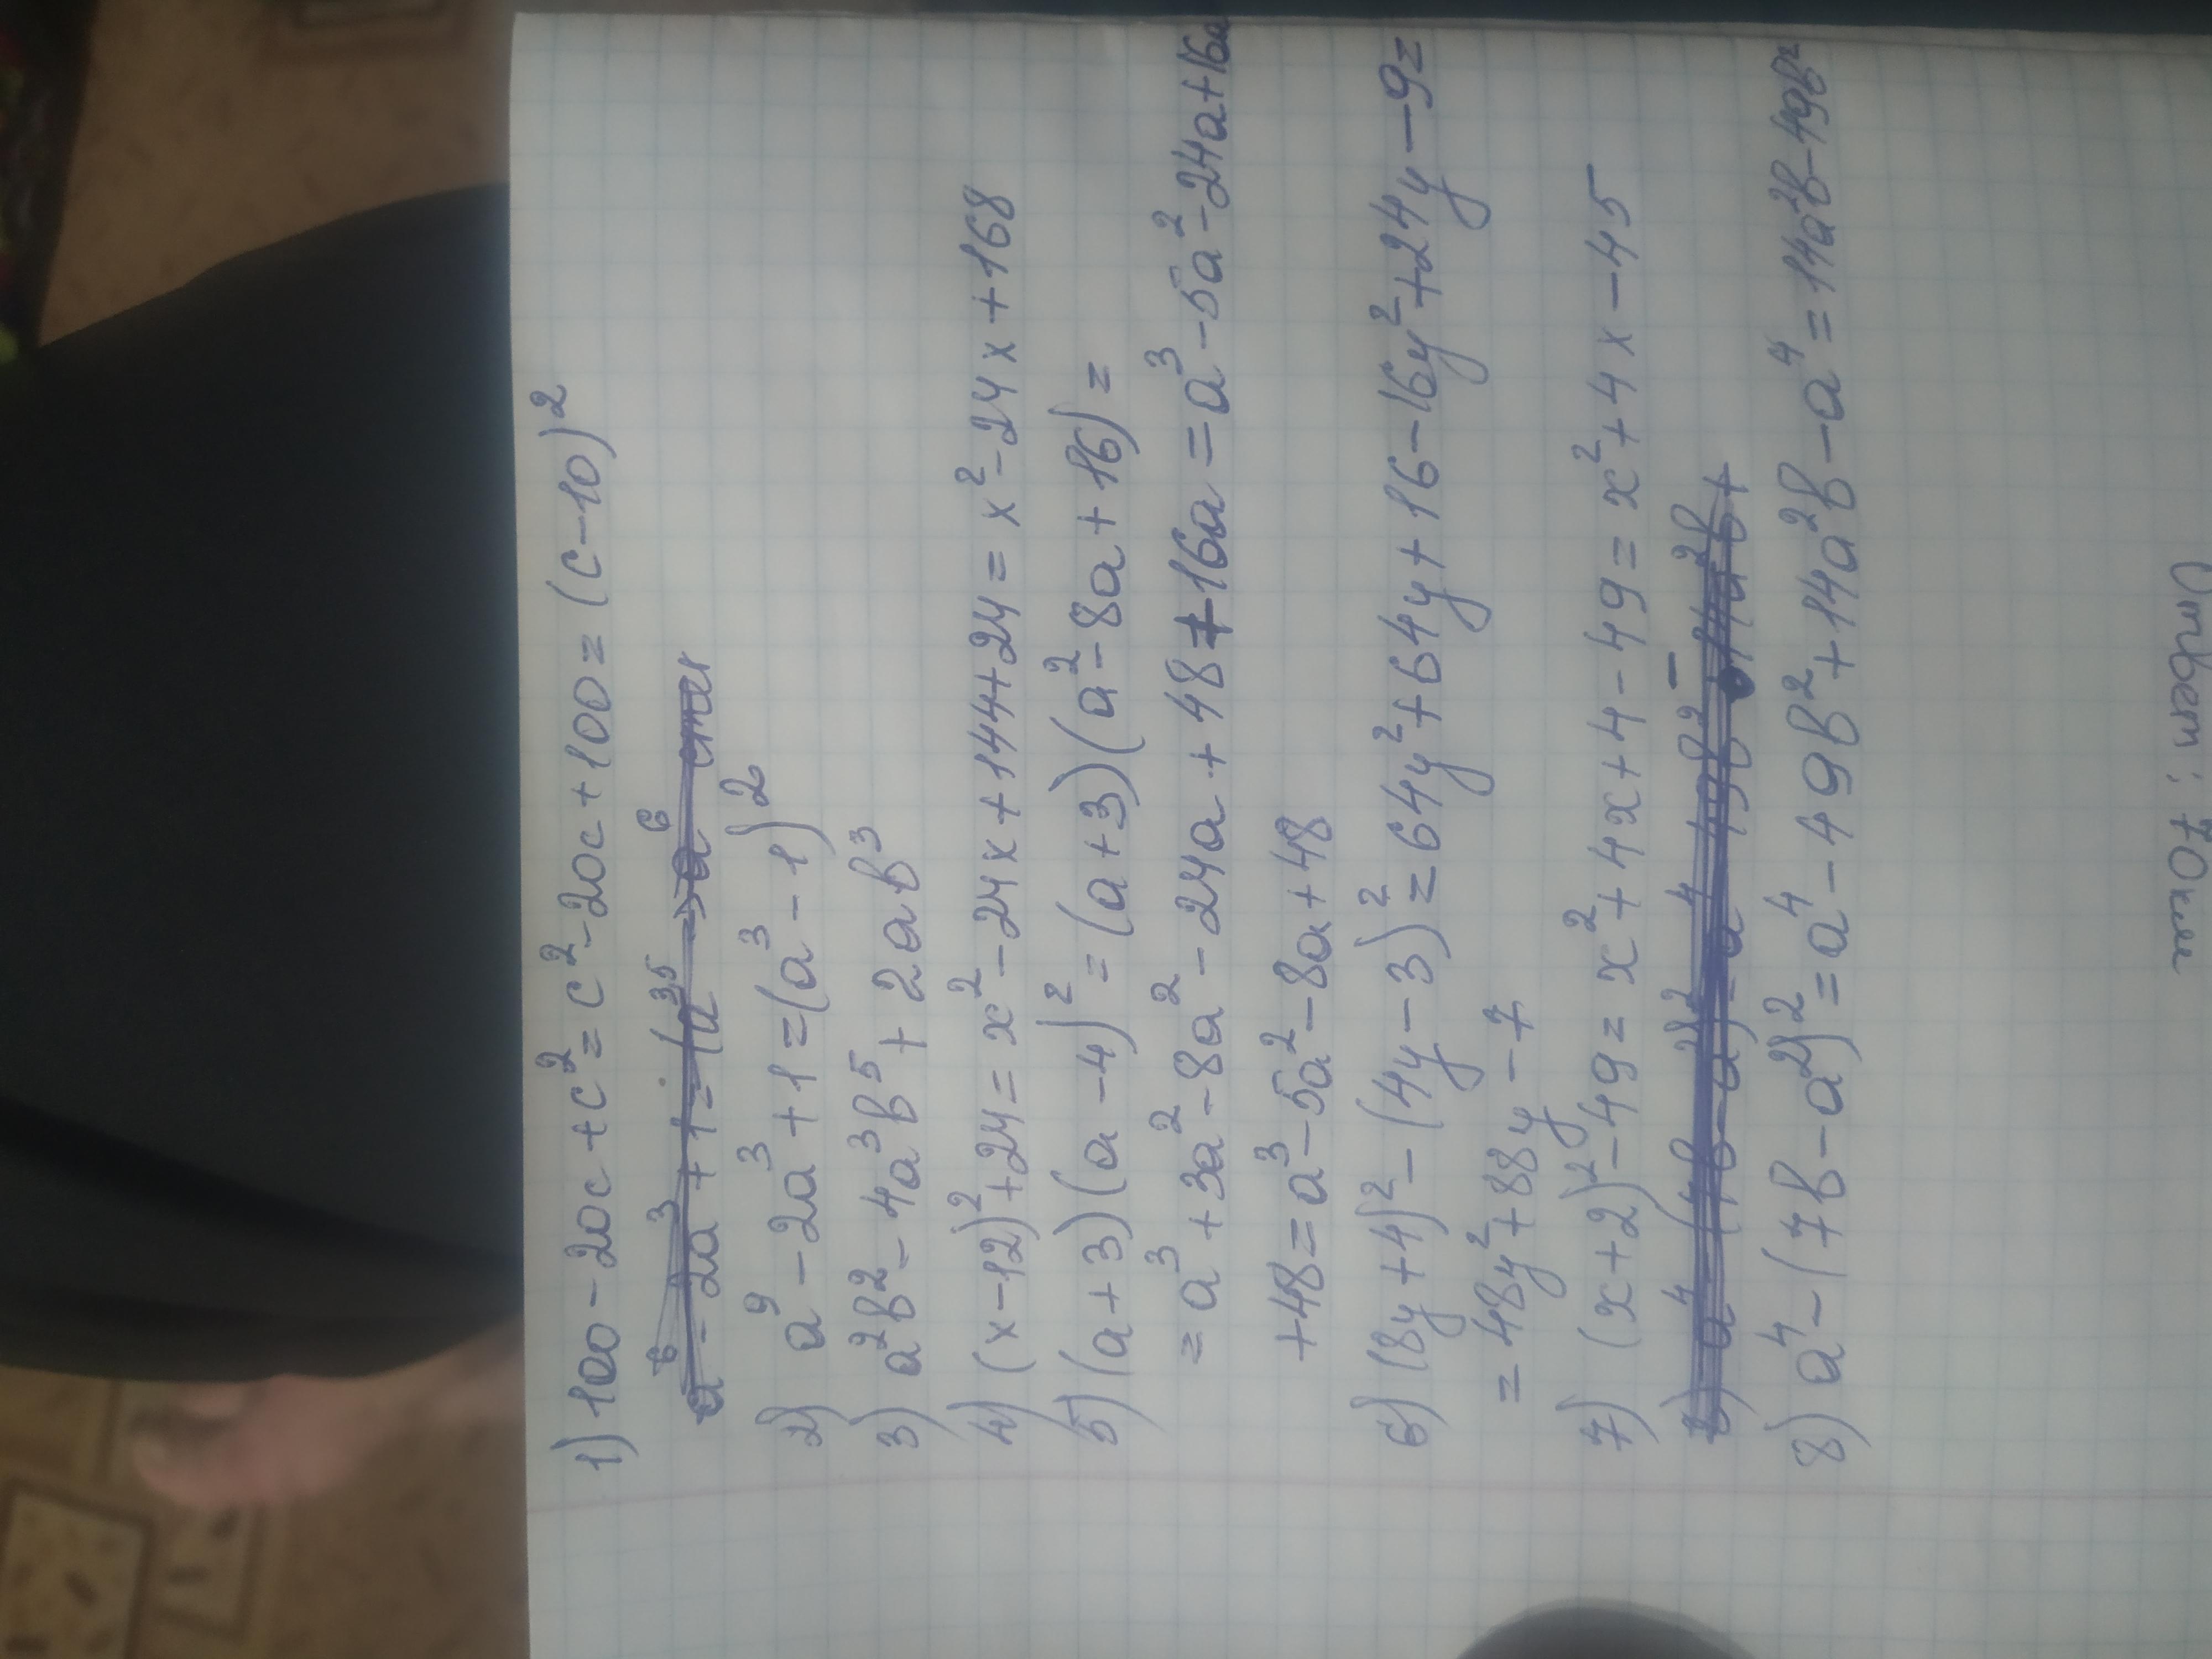 1) 100-20c+c²=c²-20c+100=(c-10)²
2) a⁹-2a³+1=(a³-1)²
3) a²b²-4a³b⁵+2ab³
4) (x-12)²+24=x²-24x+144+24=x²-24x+168
5) (a+3)(a-4)²=(a+3)(a²-8a+16)=
=a³+3a²-8a²-24a+48+16a=a³-5a²-24a+16a
+48=a³-5a²-8a+48
6) (8y+4)²-(4y-3)²=64y²+64y+16-16y²+24y-9=
=48y²+88y-7
7) (x+2)²-49=x²+4x+4-49=x²+4x-45
8) a⁴-(7b-a²)²=a⁴-49b²+14a²b-a⁴=14a²b-49b²
Ответ: 70км